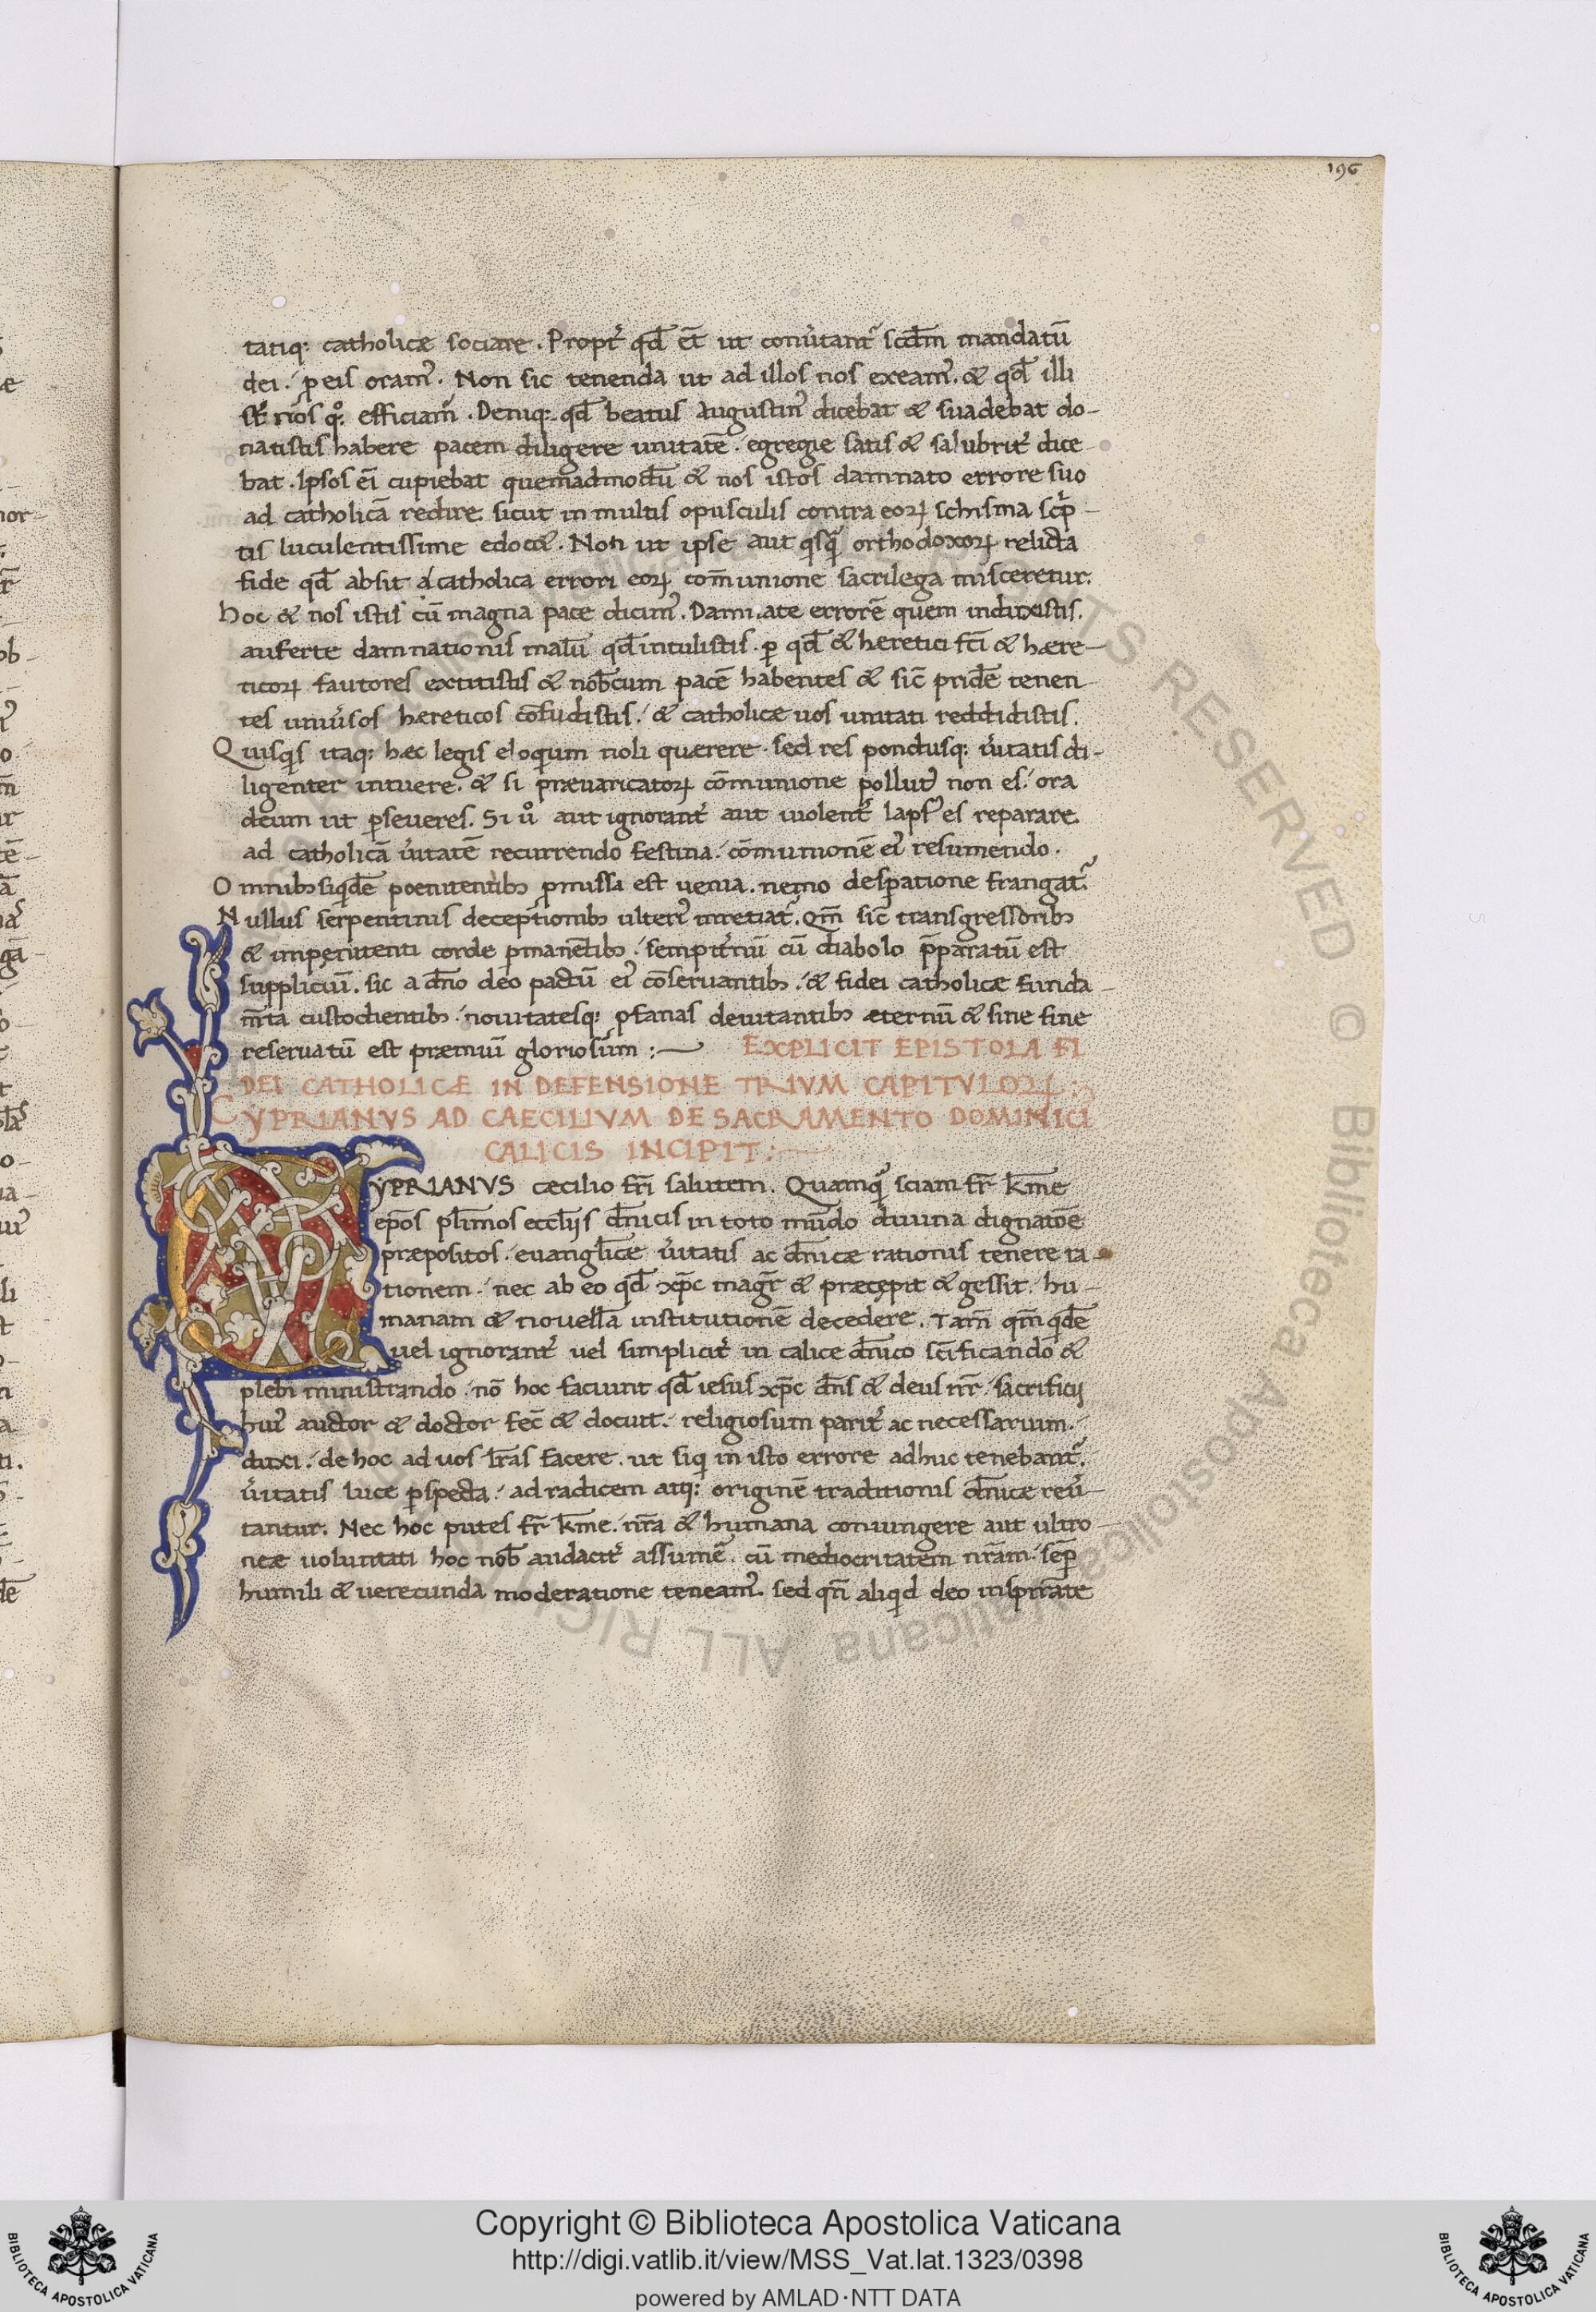 196
tatiq: catholicæ sociare. Propt̉ qd̄ et̄ ut conůtant̉ scd̄m mandatū
dei. ꝓ eis oram᷒. Non sic tenenda ut ad illos nos exeam᷒. & qd̄ illi
nōs efficiam᷒. Deniq: qd̄ beatus augustin᷒ dicebat & suadebat do-
natistis habere pacem diligere unitatē. egregie satis & salubrit̉ dice-
bat. Ipsos ei̅ cupiebat quemadmodū & nos istos damnato errore suo
ad catholicā redire. sicut in multis opusculis contra eoꝝ schisma scp̉-
tis luculentissime edoc&. Non ut ipse aut qsqᷓ orthodoxoꝝ relicta
fide qd̄ absit a catholica errori eoꝝ com̄unione sacrilega misceretur.
hoc & nos istis cū magna pace dicim᷒. Damnate errorē quem induxistis.
auferte damnationis malū qd̄ intulistis. ꝑ qd̄ & heretici fc̄i & hære-
ticoꝝ fautores extitistis & nob̄cum pacē habentes & sic̄ pridē tenen-
tes uniůsos hereticos cōfudistis. & catholicæ uos unitati reddidistis.
Quisqis itaq: hæc legis eloqium noli querere. sed res pondusq: ůitatis di-
ligenter intuere. & si præuaricatoꝝ cōmunione pollut᷒ non es. ora
deum ut ꝑseueres. Si ů aut ignorant̉ aut uiolent̉ laps᷒ es reparare.
ad catholicā ůitatē recurrendo festina. cōmunionē ei᷒ resumendo.
Omnibꝫ siqdē poenitentibꝫ ꝓmissa est uenia. nemo desꝑatione frangat᷑.
Nullus serpentinis deceptionibꝫ ulteri᷒ inretiat᷑. Qm̄ sic̄ transgressoribꝫ
& impenitenti corde ꝑmanētibꝫ. sempit̉nū cū diabolo p̄paratū est
suppliciū. sic a dn̄o deo pactū ei᷒ cōseruantibꝫ. & fidei catholicæ funda-
m̄ta custodientibꝫ. nouitatesq: ꝓfanas deuitantibꝫ æternū & sine fine
reseruatū est præmiū gloriosūm :— EXPLICIT EPISTOLA FI
DEI CATHOLICÆ IN DEFENSIONE TRIVM CAPITVLOꝜ :
CYPRIANVS AD CAECILIVM DE SACRAMENTO DOMINICI
CALICIS INCIPIT :—
CYPRIANVS cæcilio fr̄i salutem. Quamqᷓ sciam fr̄ k̄me
ep̄os pl̄imos eccl̄iis dn̄icis in toto mūdo diuina dignatōe
præpositos. euangl̄icæ ůitatis ac dn̄icæ rationis tenere ra-
tionem. nec ab eo qd̄ xp̄c magr̄ & præcepit & gessit. hu-
manam & nouellā institutionē decedere. Tam̄ qm̄ qdē
uel ignorant̉ uel simplicit̉ in calice dn̄ico sc̄ificando &
plebi ministrando. nō hoc faciunt qd̄ iesus xp̄c dn̄s & deus nr̄. sacrificij
hui᷒ auctor & doctor fec̄ & docuit. religiosum parit̉ ac necessarium.
duxi. de hoc ad uos lr̄as facere. ut siqi in isto errore adhuc tenebant᷑.
ůitatis luce ꝑspecta. ad radicem atq: originē traditionis dn̄icæ reů-
tantur. Nec hoc putes fr̄ k̄me. nr̄a & humana conuingere aut ultro-
neæ uoluntati hoc nob̄ audacit̉ assumē. cū mediocritatem nr̄am sēp
humili & uerecunda moderatione teneam᷒. sed qn̄ aliqid deo inspirāte
© Biblioteca Apostolica Vaticana ALL RIGHTS RESERVED
Copyright © Biblioteca Apostolica Vaticana
http://digi.vatlib.it/view/MSS_Vat.lat.1323/0398
powered by AMLAD·NTT DATA
BIBLIOTECA APOSTOLICA VATICANA
BIBLIOTECA APOSTOLICA VATICANA